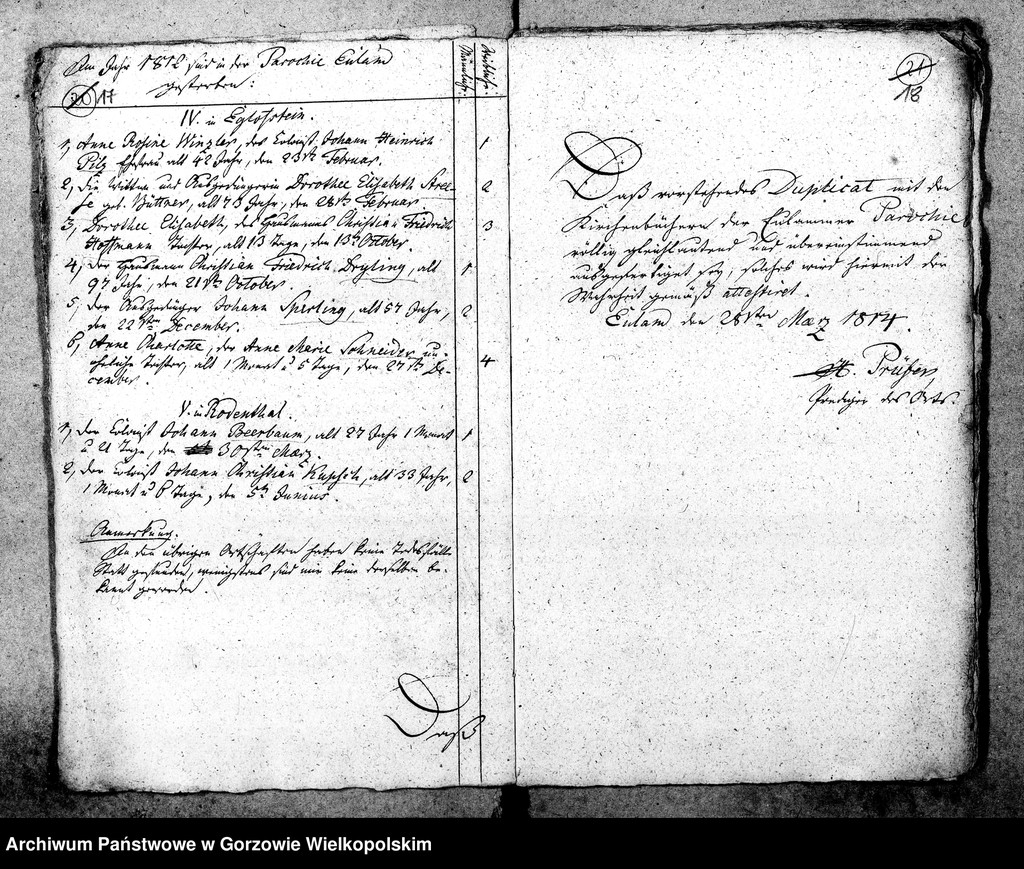 Im Jahr 1812 sind in der Parochie Eulam
gestorben:
Männliche.
Weibliche.
17
IV. in Egloffstein.
1, Anne Rosine Winzler, des Colonist Johann Heinrich 1
Pilz Ehefrau alt 42 Jahr, den 23ten Februar.
2, Die Wittwe und Ausgedingerin Dorothee Elisabeth 2
geb. Büttner, alt 78 Jahr, den 28ten Februar.
3, Dorothee Elisabeth, des Hausmanns Christian Friedrich 3
Hoffmann Tochter, alt 13 Tage, den 15ten October.
4, der Hausmann Christian Friedrich Dryling, alt 1
97 Jahr, den 21ten October.
5, der Ausgedinger Johann Sperling, alt 57 Jahr, 2
den 22ten December.
6, Anne Charlotte, der Anne Marie Schneider un-
eheliche Tochter, alt 1 Monat u 5 Tage, den 27ten De- 4
cember.
V. in Rodenthal.
1, der Colonist Johann Beerbaum, alt 27 Jahr 1 Monat 1
u 21 Tage, den 30sten Maerz.
2, der Colonist Johann Christian, alt 33 Jahr, 2
1 Monat u 6 Tage, den 5ten Junius.
Anmerkung.
In den übrigen Ortschaften haben keine Todesfälle
Statt gefunden, wenigstens sind mir keine derselben be-
kannt geworden.
Daß
21
18
Daß vorstehendes Duplicat mit den
Kirchenbüchern der Eulammer Parochie
völlig gleichlautend und übereinstimmend
ausgefertiget sey, solches wird hiermit der
Wahrheit gemäß attestiret.
Eulam den 28ten Maerz 1814.
Prüfer
Prediger des Orts.
Archiwum Państwowe w Gorzowie Wielkopolskim